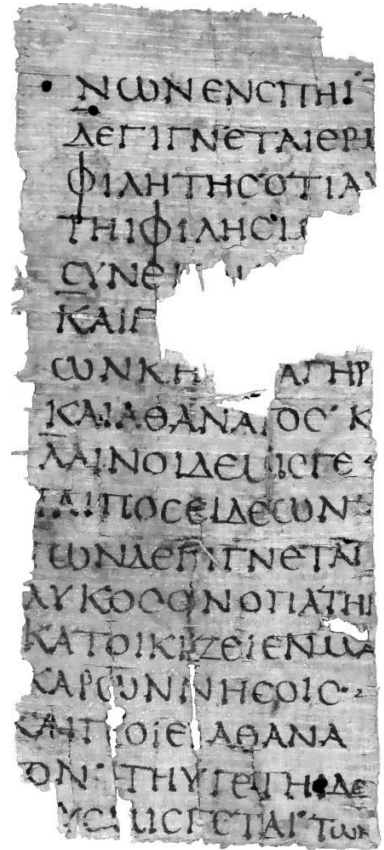 ΝωΝ ΕΝ ϹΠΗΙ
ΔΕ ΓΙΓΝΕΤΑΙ ΕΡΜ
ΦΙΛΗΤΗϹ ΟΤΙ ΑΥ
ΤΗΙ ΦΙΛΗϹΙ
ϹΥΝΕ
ΚΑΙ
ωΝ ΚΗ ΑΓΗΡ
ΚΑΙ ΑΘΑΝΑΤΟϹ Κ
ΛΑΙΝΟΙ ΔΕ ΜΙϹΓΕ
ΤΑΙ ΠΟϹΕΙΔΕωΝ
ΤωΝ ΔΕ ΓΙΓΝΕΤΑΙ
ΛΥΚΟϹ ΟΝ Ο ΠΑΤΗΡ
ΚΑΤΟΙΚΙΖΕΙ ΕΝ ΜΑ
ΚΑΡωΝ ΝΗϹΟΙϹ
ΚΑΙ ΠΟΙΕΙ ΑΘΑΝΑ
ΤΟΝ ΤΗΥΓΕΤΗΙ ΔΕ
ΥϹ ΜΙϹΓΕΤΑΙ ΤωΝ